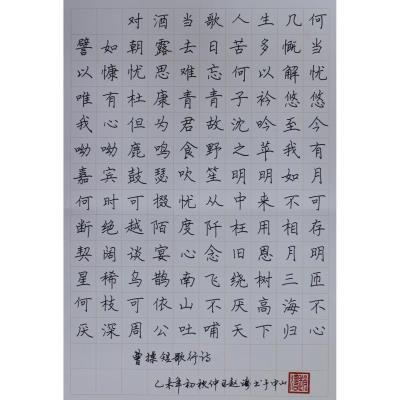 对酒当歌人生几何
譬如朝露去日苦多慨当
以慷忧思难忘何以解忧
唯有杜康青青子衿悠悠
我心但为君故沈吟至今
呦呦鹿鸣食野之苹我有
嘉宾鼓瑟吹笙明明如月
何时可掇忧从中来不可
断绝越陌度阡枉用相存
契阔谈宴心念旧恩月明
星稀乌鹊南飞绕树三匝
何枝可依山不厌高海不
厌深周公吐哺天下归心
曹操短歌行诗
乙未年初秋仲日赵书于中山